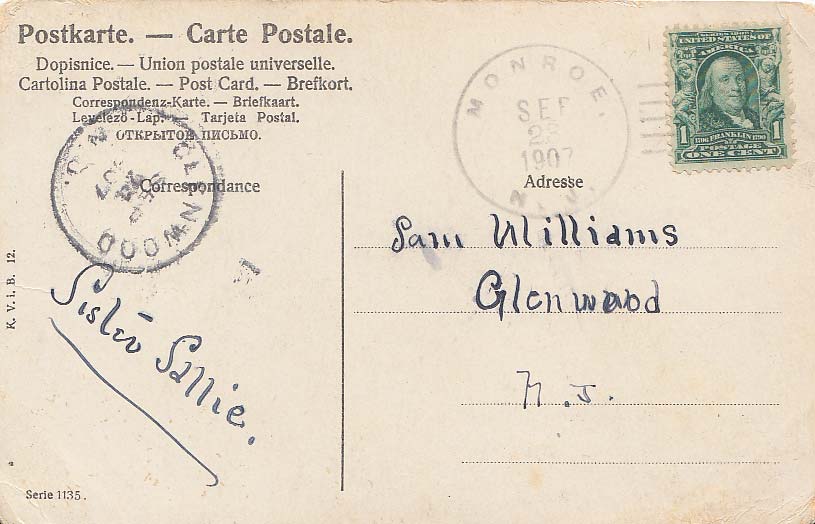 Postkarte. — Carte Postale.
Dopisnice. — Union postale universelle.
Cartolina Postale. — Post Card. — Brefkort.
Correspondenz-Karte. — Briefkaart.
Levelező-Lap. — Tarjeta Postal.
ОТКРЫТОЕ ПИСЬМО.
Correspondance
GLENWOOD
N. J.
MONROE,
SEP
1907
N. J.
UNITED STATES OF
AMERICA
1 1
1706 FRANKLIN 1790
POSTAGE
ONE CENT
Adresse
Sam Williams
Glenwood
N. J.
Sister Sallie.
K. V. i. B. 12.
Serie 1135.